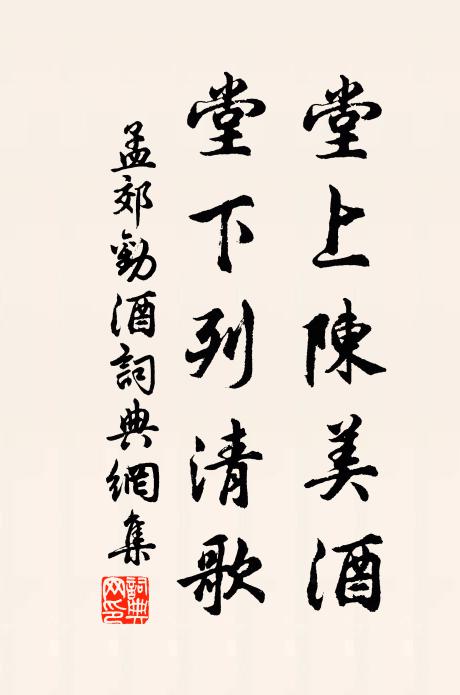 堂上陳美酒
堂下列清歌
孟郊勸酒詞典網集
詞典網印